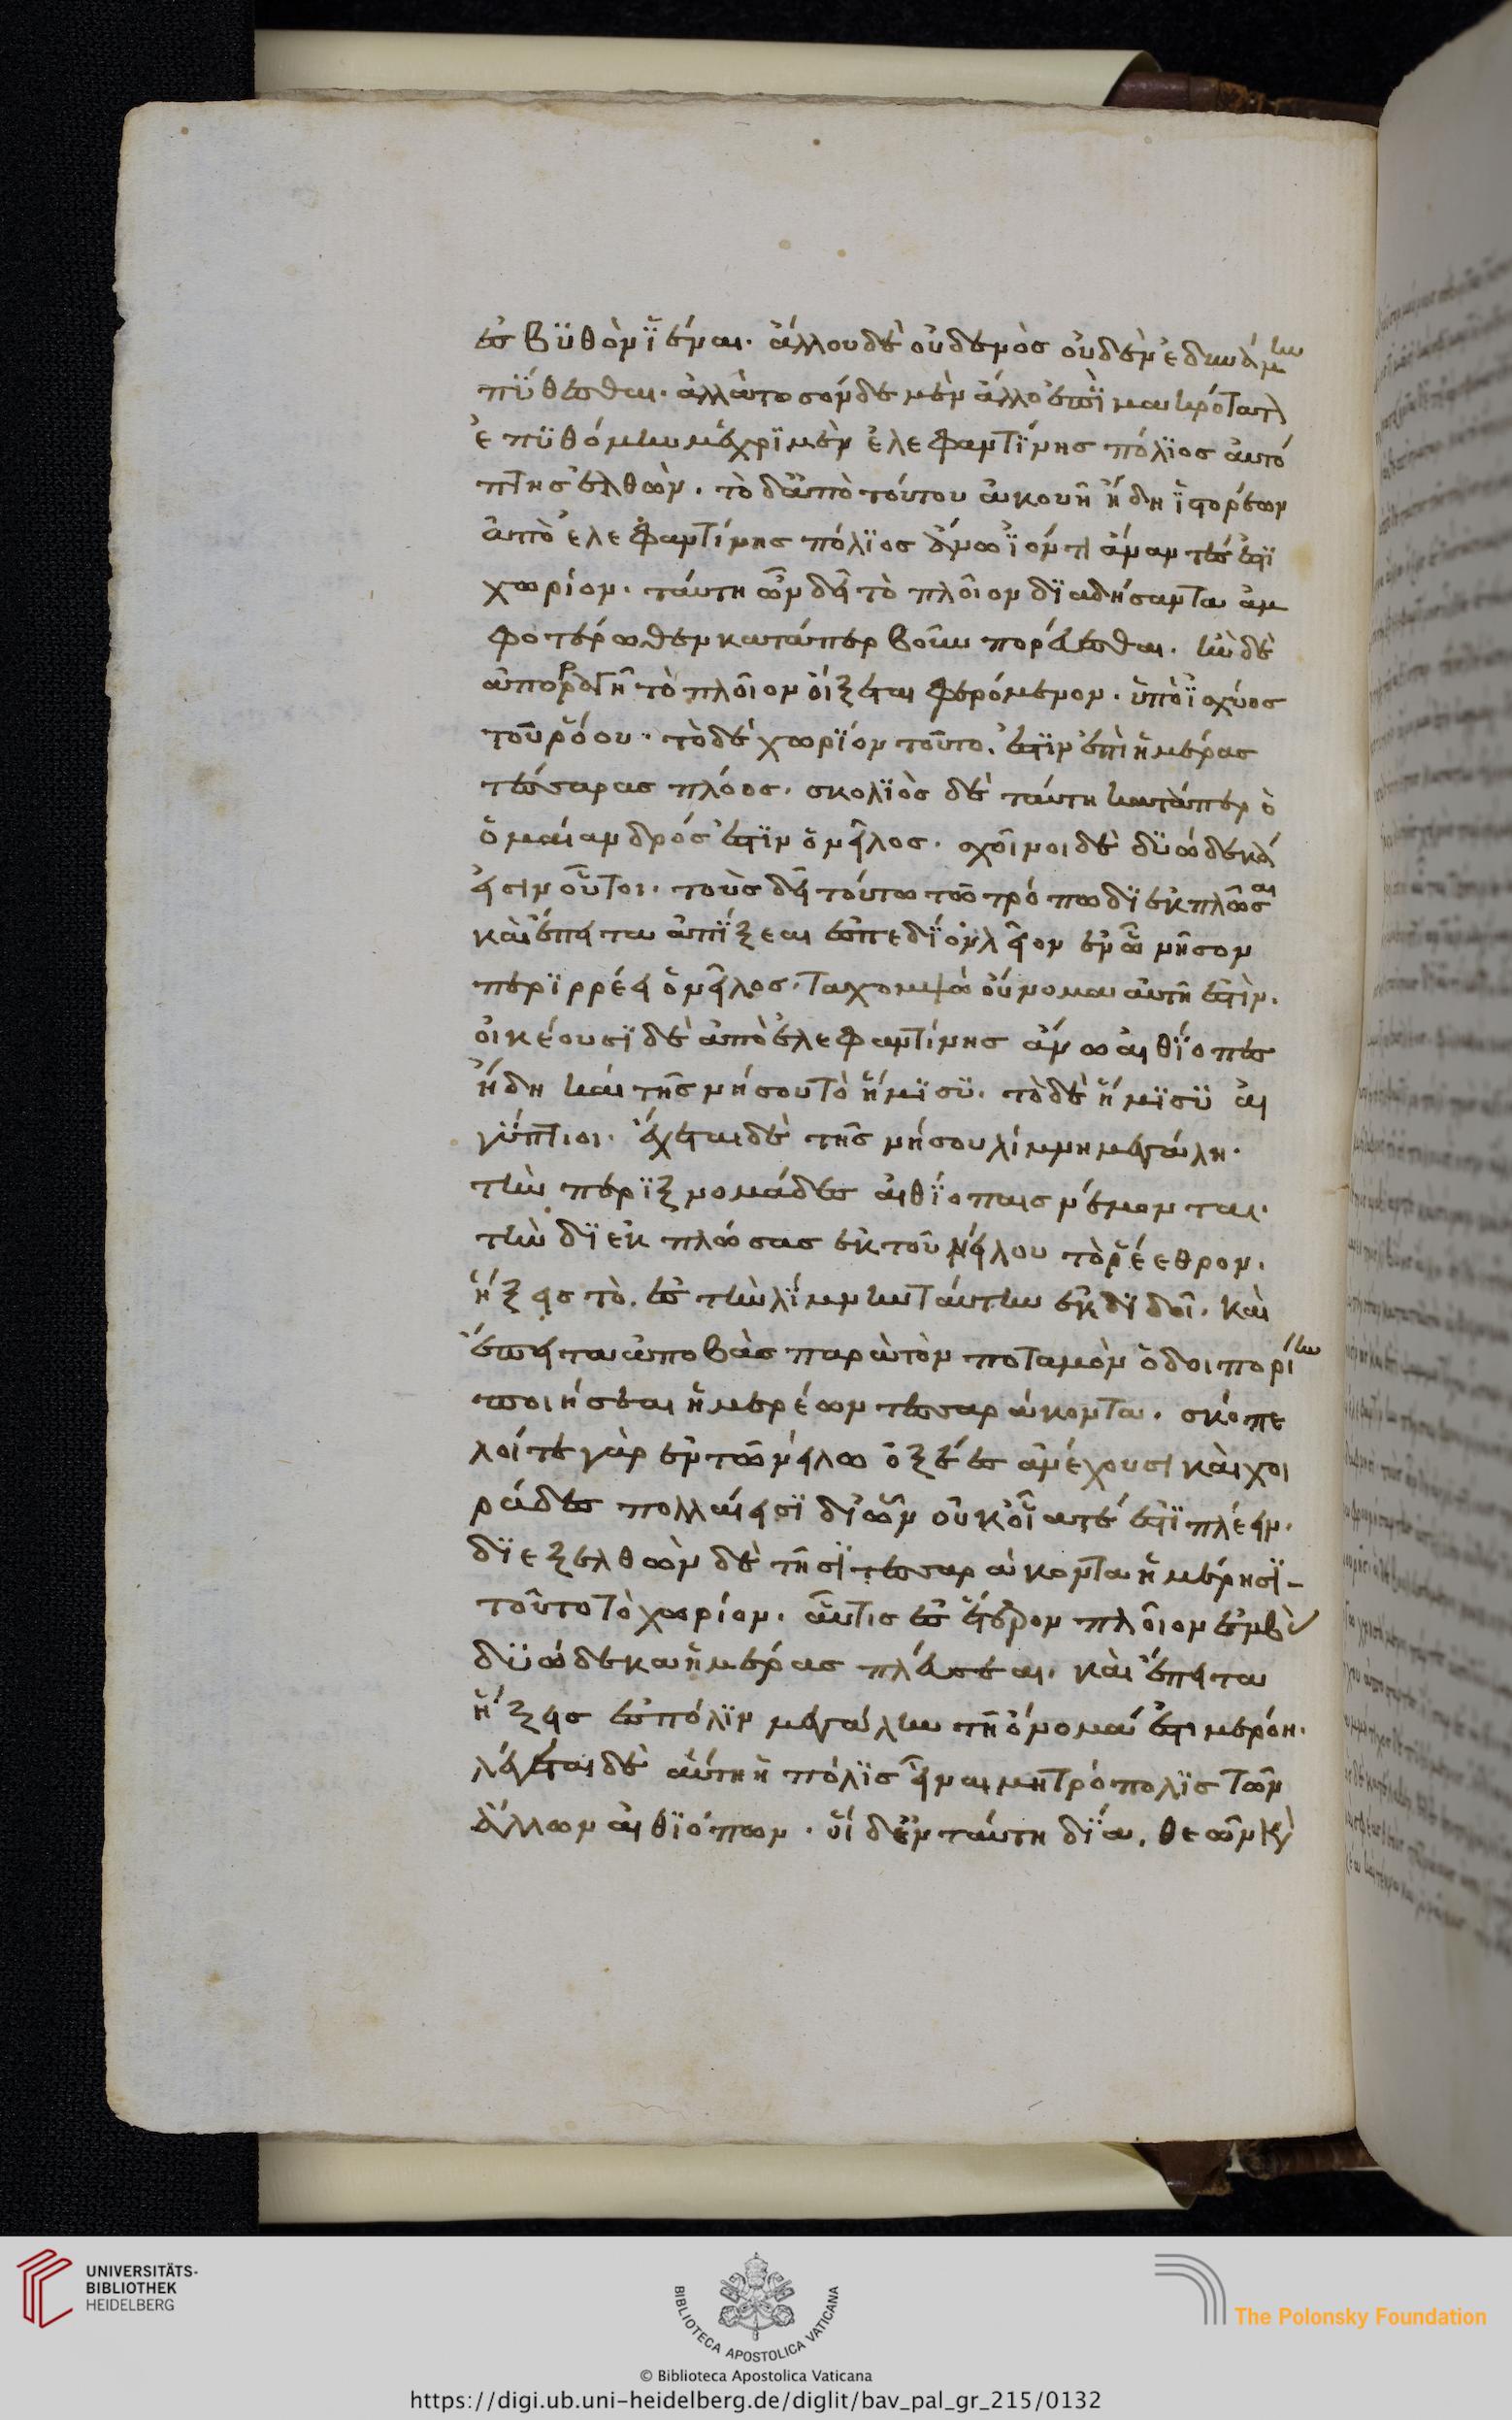 ἐσ βϋθὸν ϊέναι. ἄλλου δὲ οὐδενὸσ οὐδὲν ἐδυνάμην
πϋθέσθαι. ἀλλὰ τοσόνδε μὲν ἄλλο ἐπϊ μακρότατον
ἐπϋθόμην μέχρϊ μὲν ἐλεφαντϊνησ πόλϊοσ αὐτό
πτησ ἐλθὼν. τὸ δ' ἀπὸ τούτου ἀκουῆ ἤδη ϊστορέων
ἀπὸ ἐλεφαντίνησ πόλϊοσ ἄνω ϊόντι ἄναντέσ ἐστϊ
χωρίον. ταύτη ὦν δεῖ τὸ πλοῖον δϊαδήσαντα ἀμ
φοτέρωθεν κατάπερ βοῦν πορεύεσθαι. ἢν δὲ
ἀπορραγῆ τὸ πλοῖον οἴχεται φερόμενον. ὑπὸ ϊσχύοσ
τοῦ ῥόου. τὸ δὲ χωρϊον τοῦτο. ἐστϊν ἐπὶ ἡμέρασ
τέσσαρασ πλόοσ. σκολϊὸσ δὲ ταύτη κατάπερ ὁ
ὁ μαίανδρόσ ἐστϊν ὁ νεῖλοσ. σχοῖνοι δὲ δϋώδεκά
εἰσιν οὗτοι. τοὺσ δεῖ τούτω τῶ τρόπω δϊεκπλῶσαι
καὶ ἔπειτα ἀπΐξεαι ἐσ πεδϊον λεῖον ἐν ὧ νῆσον
περϊρρέει ὁ νεῖλοσ. ταχομψὼ οὔνομα αὐτῆ ἐστὶν.
οἰκέουσϊ δὲ ἀπὸ ἐλεφαντίνησ ἄνω αἰθΐοπεσ
ἤδη καὶ τῆσ νήσου τὸ ἥμϊσϋ. τὸ δὲ ἥμϊσϋ αἰ
γύπτιοι. ἔχεται δὲ τῆσ νήσου λίμνη μεγάλη.
τὴν πέρϊξ νομάδεσ αἰθΐοπαισ νέμονται.
τὴν δϊεκπλώσασ ἐκ τοῦ νείλου τὸ ῥέεθρον.
ἥξεισ τὸ. ἐσ τὴν λΐμνην ταύτην ἐκδϊδοῖ. καὶ
ἔπειτα ἀποβὰσ παρὰ τὸν ποταμὸν ὁδοιπορίην
ποιήσεαι ἡμερέων τεσσαράκοντα. σκόπε
λοί τε γὰρ ἐν τῶ νείλω ὀξέεσ ἀνέχουσι καὶ χοι
ράδεσ πολλαί εἰσϊ δι' ὧν οὐκ οἷατέ ἐστϊ πλέειν.
δϊεξελθὼν δὲ τῆσϊ τεσσαράκοντα ἡμέρησϊ-
τοῦτο τὸ χωρίον. αὖτισ ἐσ ἕτερον πλοῖον ἐμβὰσ
δϋώδεκα ἡμέρασ πλεύσεαι. καὶ ἔπειτα
ἥξεισ ἐσ πόλϊν μεγάλην τῆ ὄνομά ἐστι μερόη.
λέγεται δὲ αὕτη ἡ πόλϊσ εἶναι μητρόπολϊσ τῶν
ἄλλων αἰθϊόπων. οἱ δ' ἐν ταύτη δΐα. θεῶν καὶ
UNIVERSITÄTS-
BIBLIOTHEK
HEIDELBERG
BIBLIOTECA APOSTOLICA VATICANA
The Polonsky Foundation
© Biblioteca Apostolica Vaticana
https://digi.ub.uni-heidelberg.de/diglit/bav_pal_gr_215/0132